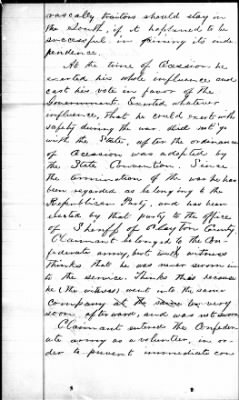 rascally traitors should stay in
the South, if it happened to be
successful in gaining its inde
pendence.
At the time of Secession he
exerted his whole influence and
cast his vote in favor of the
Government. Exerted whatever
influence, that he could exert with
safety during the war. did not go
with the State, after the ordinance
of Secession was adopted by
the State Convention. Since
the termination of the war he has
been regarded as belonging to the
Republican Party, and was been
elected by that party to the office
of Sheriff of Clayton County.
Claimant belonged to the Con-
federate army, but witness
thinks that he was never sworn in
to the service. Thinks this because
he (the witness) went into the same
company at the same very
soon afterward, and was not sworn
Claimant entered the Confeder
ate army as a volunteer, in or-
der to prevent immediate con